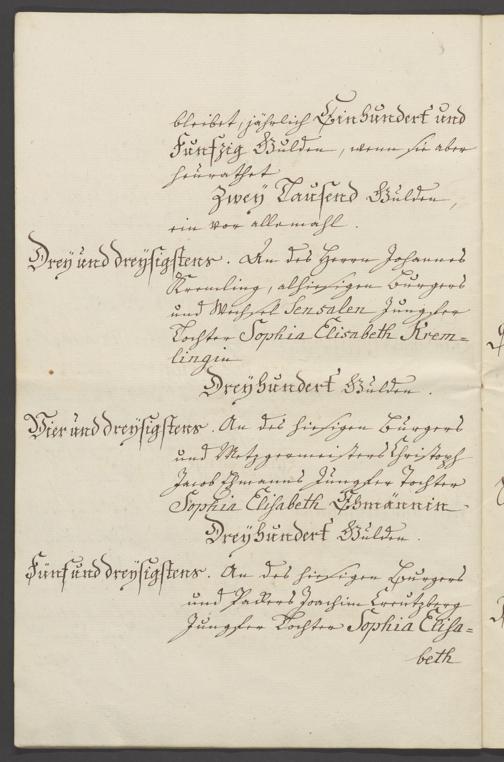 bleibet, jährlich Einhundert und
Funfzig Gulden, wenn sie aber
heurathet
Zwey Tausend Gulden,
ein vor allemahl.
Drey und dreysigstens. An des Herrn Johannes
Kremling, alhiesigen Burgers
und Wechsel Sensalen Jungfer
Tochter Sophia Elisabeth Krem=
lingin
Dreyhundert Gulden.
Vier und dreysigstens. An des hiesigen Burgers
und Metzgermeisters Christoph
Jacob Ehmanns Jungfer Tochter
Sophia Elisabeth Ehmännin
Dreyhundert Gulden.
Fünf und dreysigstens. An des hiesigen Burgers
und Packers Joachim Creutzberg
Jungfer Tochter Sophia Elisa=
beth